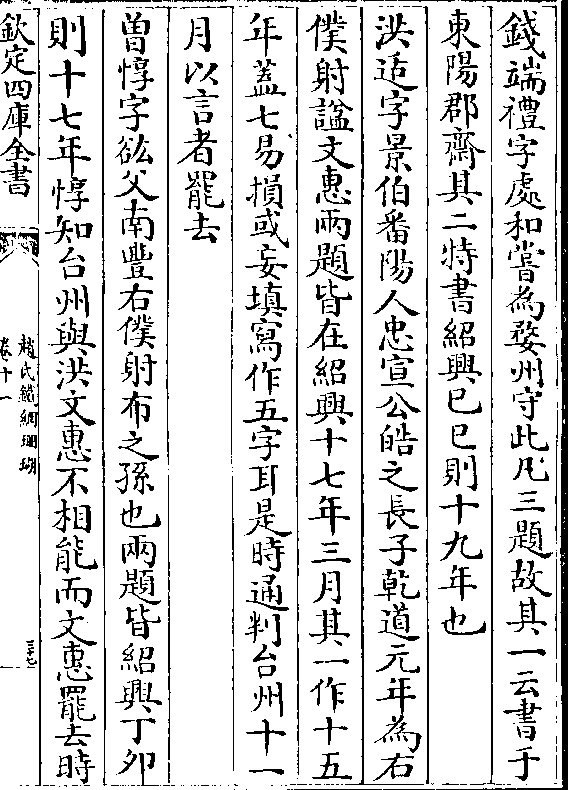 錢端禮字處和嘗為婺州守此凡三題故其一云書于
東陽郡齋其二特書紹興已巳則十九年也
洪适字景伯番陽人忠宣公皓之長子乾道元年為右
僕射諡文惠兩題皆在紹興十七年三月其一作十五
年蓋七易損或妄填寫作五字耳是時通判台州十一
月以言者罷去
曾惇字紘父南豐右僕射布之孫也兩題皆紹興丁卯
則十七年惇知台州與洪文惠不相能而文惠罷去時
欽定四庫全書
趙氏鐵網珊瑚
卷十一
三十七